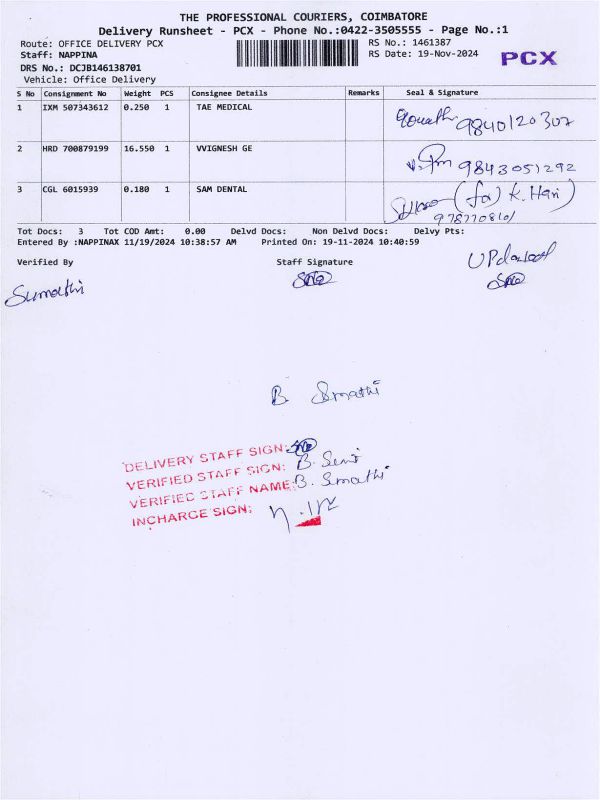 THE PROFESSIONAL COURIERS, COIMBATORE
Delivery Runsheet - PCX - Phone No.:0422-3505555 - Page No.:1
Route: OFFICE DELIVERY PCX RS No.: 1461387
Staff: NAPPINA RS Date: 19-Nov-2024 PCX
DRS No.: DCJB146138701
Vehicle: Office Delivery
S No Consignment No Weight PCS Consignee Details Remarks Seal & Signature
1 IXM 507343612 0.250 1 TAE MEDICAL 9840120307
2 HRD 700879199 16.550 1 VVIGNESH GE 9843051292
3 CGL 6015939 0.180 1 SAM DENTAL (for) K. Hari
Tot Docs: 3 Tot COD Amt: 0.00 Delvd Docs: Non Delvd Docs: Delvy Pts:
Entered By :NAPPINAX 11/19/2024 10:38:57 AM Printed On: 19-11-2024 10:40:59
Verified By Staff Signature
Sumathi
B. Smathi
DELIVERY STAFF SIGN:
VERIFIED STAFF SIGN:
VERIFIED STAFF NAME: B. Smathi
INCHARGE SIGN: